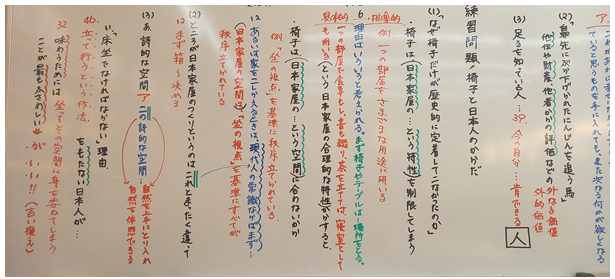 ア
ていると思うものを手に入れても、また次なる何かが欲しくなる
(2)「鼻先にぶら下げられたにんじんを追う馬」
他者や財産、他者からの評価などの
外なる価値
外的価値
(3) 足るを知っている人… 39. 今の自分…肯できる
人
練習問題1 椅子と日本人のからだ
(1)「なぜ椅子だけが歴史的に定着してこなかったのか」
・椅子は(日本家屋の…という特性)を制限してしまう
抽象的
例、一つの部屋をさまざまな用途に用いる
6. 理由はいろいろと考えられる。まず椅子やテーブルは…場所をとる。
具体的
一つの部屋で食事もし、書も綴り、茶を立てては、寝室として
も用いる(という日本家屋の合理的な特性)からすると、
・椅子は(日本家屋の…という空間)に合わないから
例、「坐の視点」を基準に秩序立てられている。
12 あるいは家をこしらえるときは、現代人の常識ならばまず…
(日本家屋の空間は)「坐の視点」を基準にすべてが
秩序立てられている
(2) ところが日本家屋のつくりというのは、これとまったく違って
12 まず箱〜決める
(3) ある詩的な空間
ア この詩的な空間…
自然を上手にとり入れ
自然を体感できる
い、床坐でなければならない理由
46. 立って行う…という作法、
をもたない日本人が…
32 味わうためには、坐ってその空間に身を委ねてしまう
ことが最もふさわしい が…いい!! (言い換え)